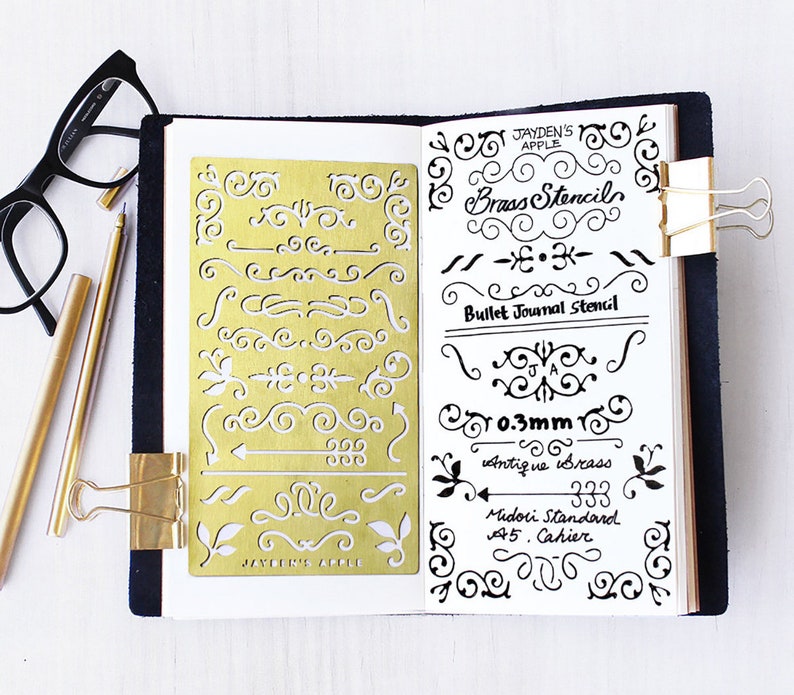 JAYDEN'S APPLE
JAYDEN'S
APPLE
Brass Stencil
Bullet Journal Stencil
J A
0.3mm
Antique Brass
Midori Standard
A5. Cahier